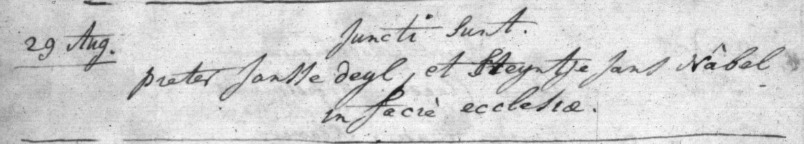 29 Aug. Juncti Sunt.
pieter Jansse deyl, et Steyntje Jans Nâbel
in faciè ecclesiæ.